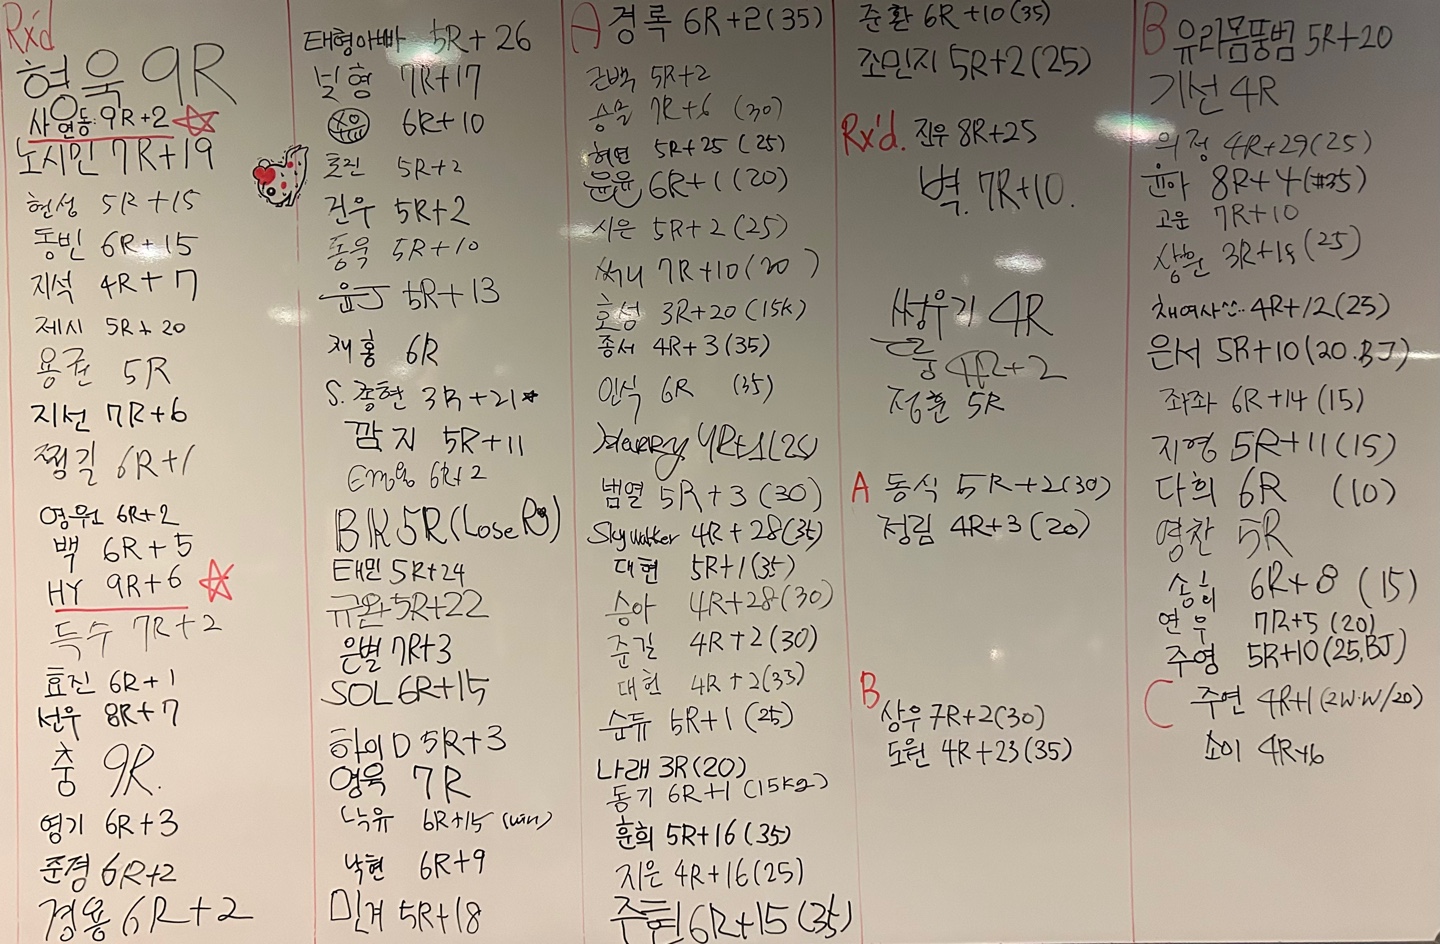 Rx'd
형욱 9R
사연동: 9R+2
노시민 7R+19
현성 5R+15
동빈 6R+15
지석 4R+7
제시 5R+20
용권 5R
지선 7R+6
찡길 6R+1
영원 6R+2
백 6R+5
HY 9R+6
득수 7R+2
효진 6R+1
선우 8R+7
춤 9R.
영기 6R+3
준경 6R+2
경용 6R+2
태형아빠 5R+26
닐형 7R+17
6R+10
효진 5R+2
건우 5R+2
동욱 5R+10
윤J 5R+13
재홍 6R
S. 종현 3R+21
깜지 5R+11
6R+2
BK 5R (Lose R)
태민 5R+24
규완 5R+22
은별 7R+3
SOL 6R+15
하이D 5R+3
영욱 7R
낙유 6R+15 (win)
낙현 6R+9
민계 5R+18
A 경록 6R+2 (35)
근백 5R+2
승물 7R+6 (30)
허연 5R+25 (25)
윤윤 6R+1 (20)
시은 5R+2 (25)
써니 7R+10 (20)
호성 3R+20 (15k)
종서 4R+3 (35)
인식 6R (35)
Harry 4R+1 (25)
범열 5R+3 (30)
Skywalker 4R+28 (35)
대현 5R+1 (35)
승아 4R+28 (30)
준길 4R+2 (30)
대헌 4R+2 (35)
순듀 5R+1 (25)
나래 3R (20)
동기 6R+1 (15kg)
훈희 5R+16 (35)
지은 4R+16 (25)
주현 6R+15 (35)
준환 6R+10 (35)
조민지 5R+2 (25)
Rx'd. 진우 8R+25
벽. 7R+10.
쌍우기 4R
4R+2
정훈 5R
A 동식 5R+2 (30)
정림 4R+3 (20)
B
상우 7R+2 (30)
도원 4R+23 (35)
B 유리몸뚱범 5R+20
기선 4R
의정 4R+29 (25)
윤아 8R+4 (35)
고운 7R+10
상원 3R+19 (25)
채여사 4R+12 (25)
은서 5R+10 (20. BJ)
좌좌 6R+14 (15)
지영 5R+11 (15)
다희 6R (10)
영찬 5R
송희 6R+8 (15)
연우 7R+5 (20)
주영 5R+10 (25, BJ)
C 주연 4R+1 (2W.W/20)
소이 4R+6